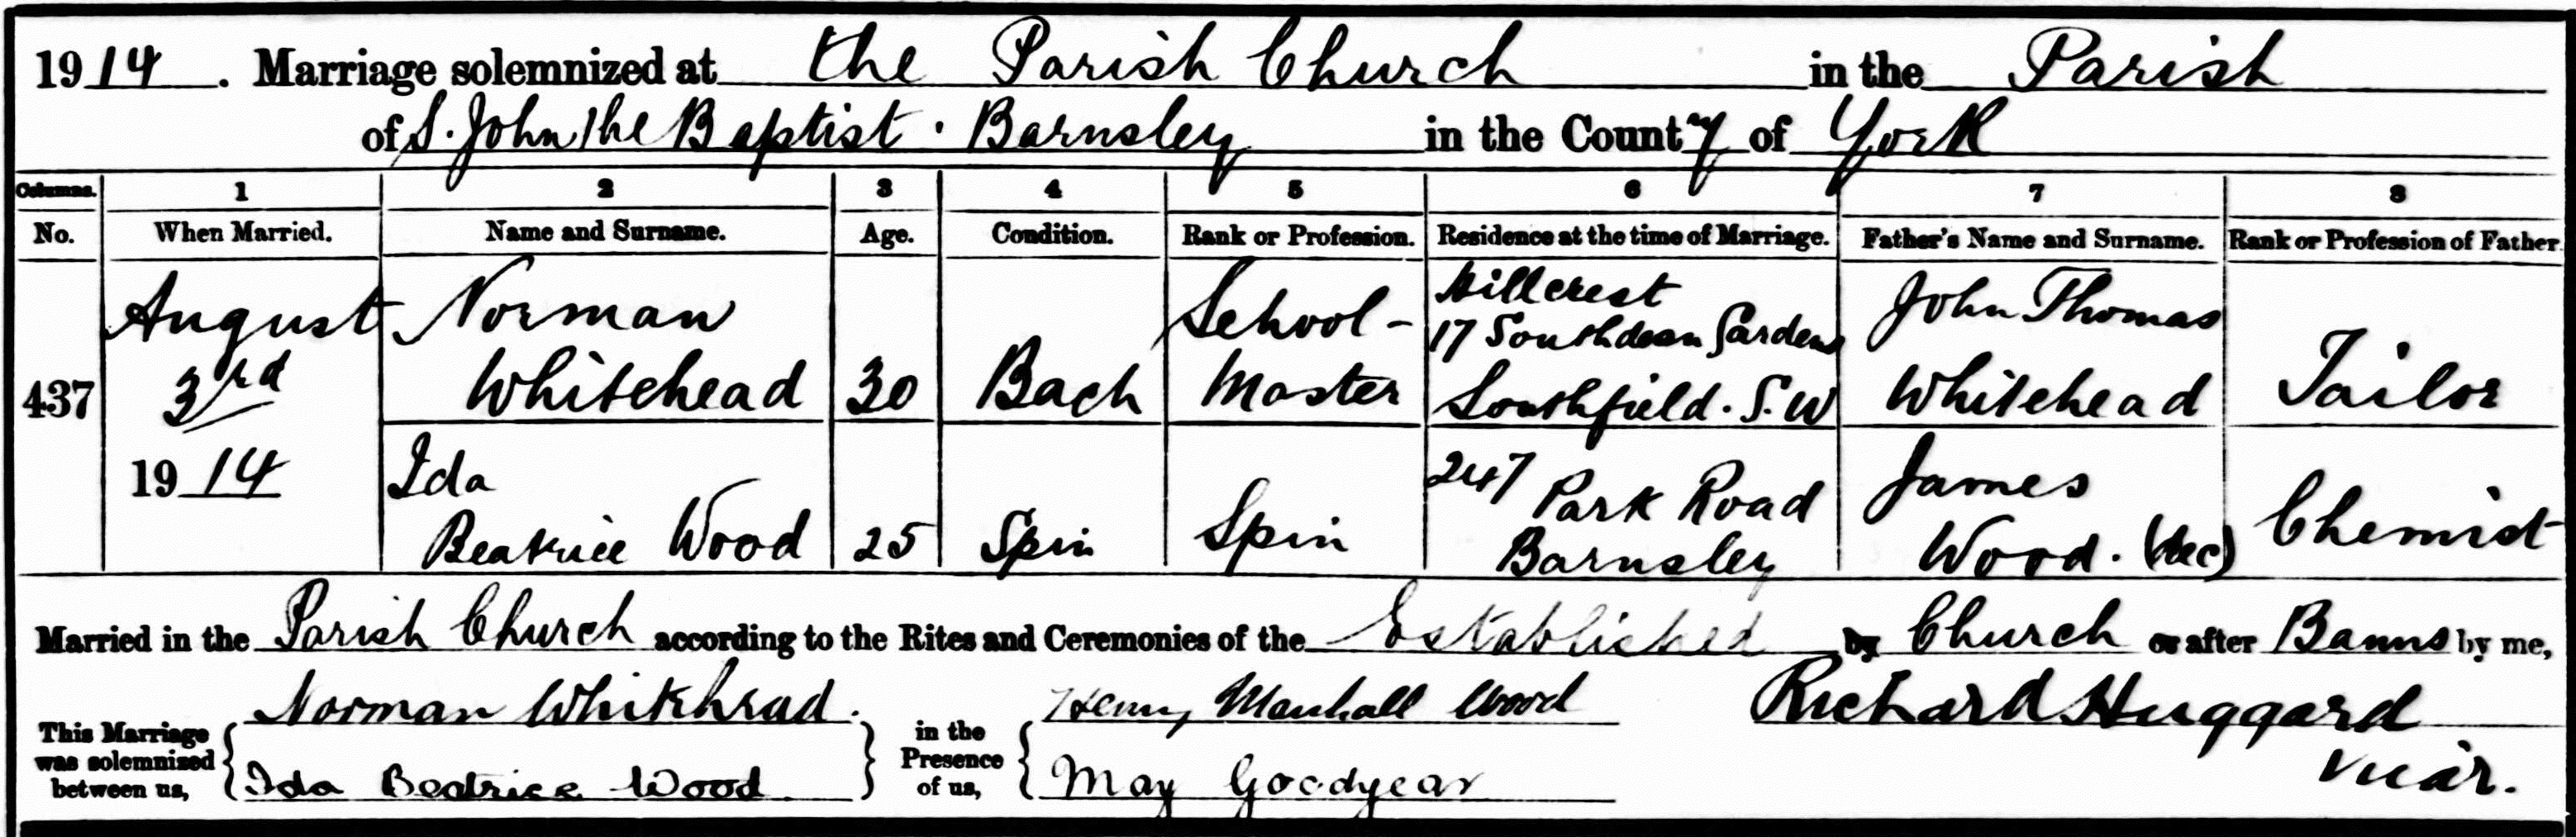 1914. Marriage solemnized at the Parish Church in the Parish
of S. John The Baptist . Barnsley in the County of York
Columns. 1 2 3 4 5 6 7 8
No. When Married. Name and Surname. Age. Condition. Rank or Profession. Residence at the time of Marriage. Father's Name and Surname. Rank or Profession of Father.
437
August
3rd
1914
Norman
Whitehead
30
Bach
School-
Master
Hillcrest
17 Southdean Gardens
Southfield. S.W
John Thomas
Whitehead
Tailor
Ida
Beatrice Wood
25
Spin
Spin
247 Park Road
Barnsley
James
Wood. (dec)
Chemist
Married in the Parish Church according to the Rites and Ceremonies of the Established by Church or after Banns by me,
This Marriage
was solemnized
between us,
Norman Whitehead.
Ida Beatrice Wood.
in the
Presence
of us,
Henry Marshall Wood
May Goodyear
Richard Huggard
Vicar.